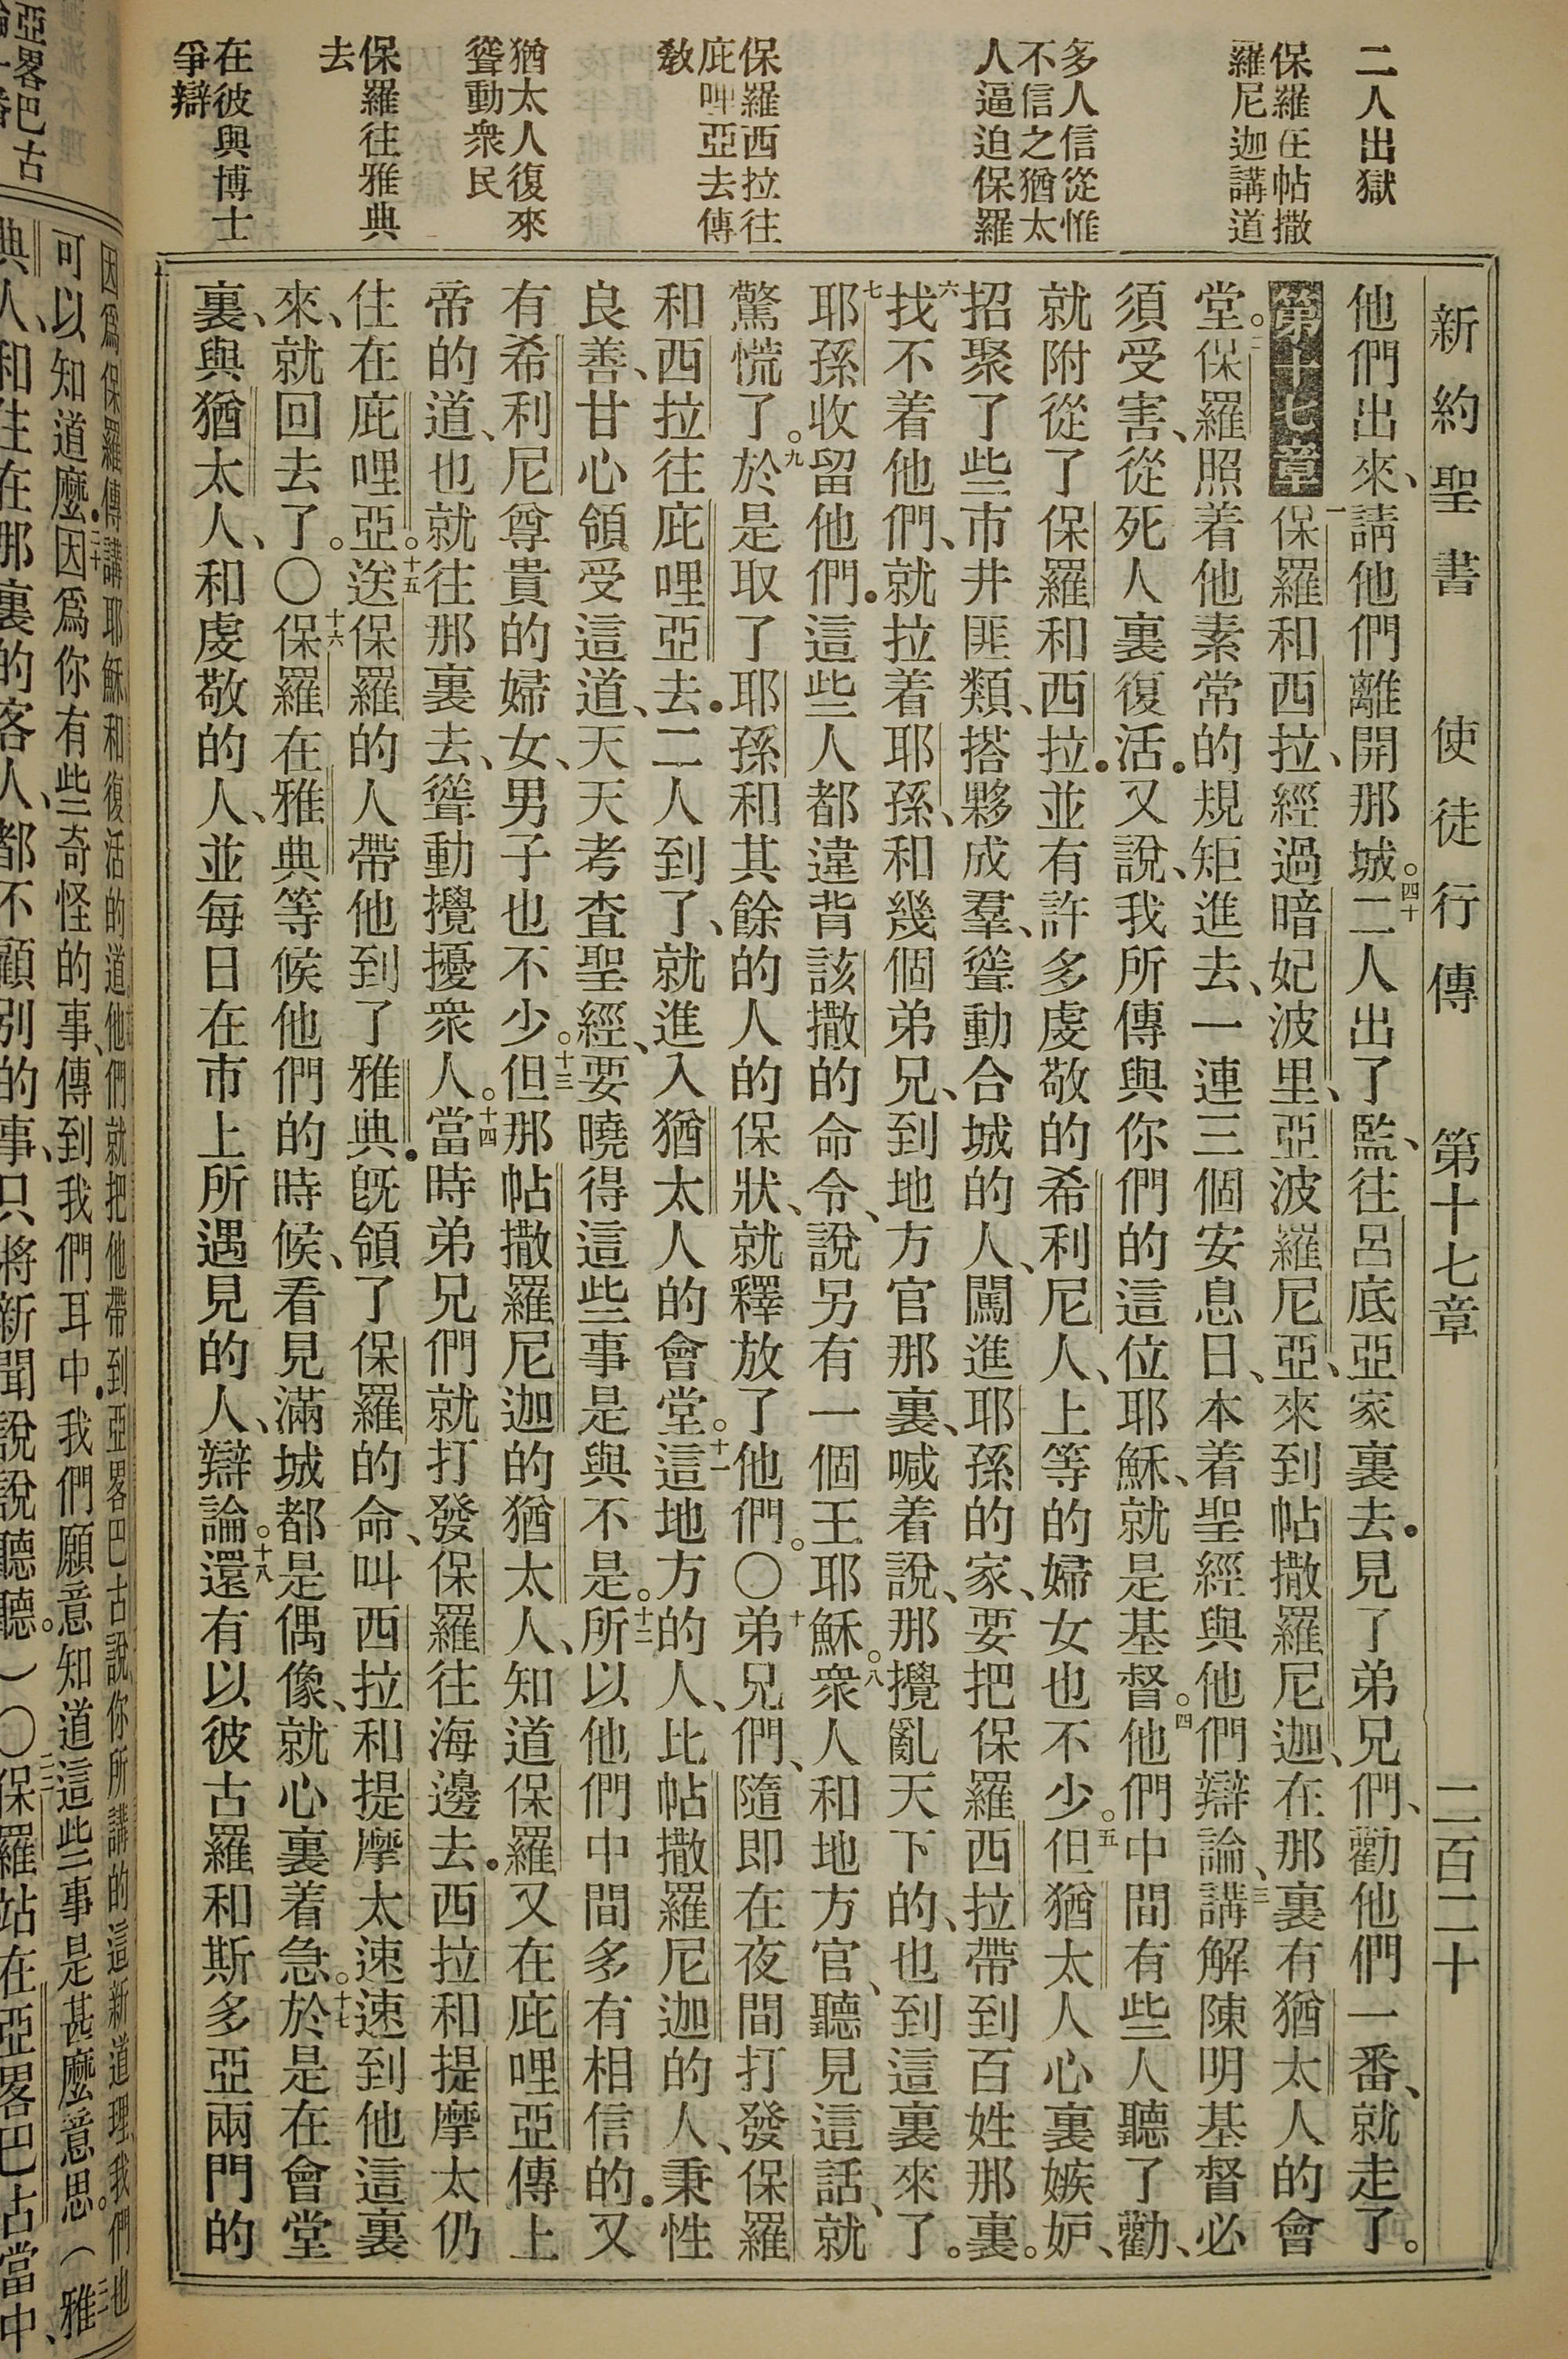 二人出獄
保羅在帖撒
羅尼迦講道
多人信從惟
不信之猶太
人逼迫保羅
保羅西拉往
庇哩亞去傳
教
猶太人復來
聳動衆民
保羅往雅典
去
在彼與博士
爭辯
新約聖書 使徒行傳 第十七章 二百二十
他們出來、請他們離開那城。四十二人出了監、往呂底亞家裏去．見了弟兄們、勸他們一番、就走了。
第十七章 一保羅和西拉、經過暗妃波里、亞波羅尼亞、來到帖撒羅尼迦、在那裏有猶太人的會
堂。二保羅照着他素常的規矩進去、一連三個安息日、本着聖經與他們辯論、三講解陳明基督必
須受害、從死人裏復活．又說、我所傳與你們的這位耶穌、就是基督。四他們中間有些人聽了勸、
就附從了保羅和西拉．並有許多虔敬的希利尼人、上等的婦女也不少。五但猶太人心裏嫉妒、
招聚了些市井匪類、搭夥成羣、聳動合城的人、闖進耶孫的家、要把保羅西拉帶到百姓那裏。
六找不着他們、就拉着耶孫、和幾個弟兄、到地方官那裏、喊着說、那攪亂天下的、也到這裏來了。
七耶孫收留他們．這些人都違背該撒的命令、說另有一個王耶穌。八衆人和地方官、聽見這話、就
驚慌了。九於是取了耶孫和其餘的人的保狀、就釋放了他們。〇十弟兄們、隨即在夜間打發保羅
和西拉往庇哩亞去．二人到了、就進入猶太人的會堂。十一這地方的人、比帖撒羅尼迦的人、秉性
良善、甘心領受這道、天天考查聖經、要曉得這些事是與不是。十二所以他們中間多有相信的．又
有希利尼尊貴的婦女、男子也不少。十三但那帖撒羅尼迦的猶太人、知道保羅又在庇哩亞傳上
帝的道、也就往那裏去、聳動攪擾衆人。十四當時弟兄們就打發保羅往海邊去．西拉和提摩太仍
住在庇哩亞。十五送保羅的人帶他到了雅典．旣領了保羅的命、叫西拉和提摩太速速到他這裏
來、就回去了。〇十六保羅在雅典等候他們的時候、看見滿城都是偶像、就心裏着急。十七於是在會堂
裏、與猶太人、和虔敬的人、並每日在市上所遇見的人、辯論。十八還有以彼古羅和斯多亞兩門的
亞畧巴古
因爲保羅傳講耶穌和復活的道他們就把他帶到亞畧巴古說你所講的這新道理我們也
可以知道麼．二十因爲你有些奇怪的事、傳到我們耳中．我們願意知道這些事是甚麼意思。（雅
典人、和住在那裏的客人、都不顧別的事、只將新聞說說聽聽。）〇保羅站在亞畧巴古當中、